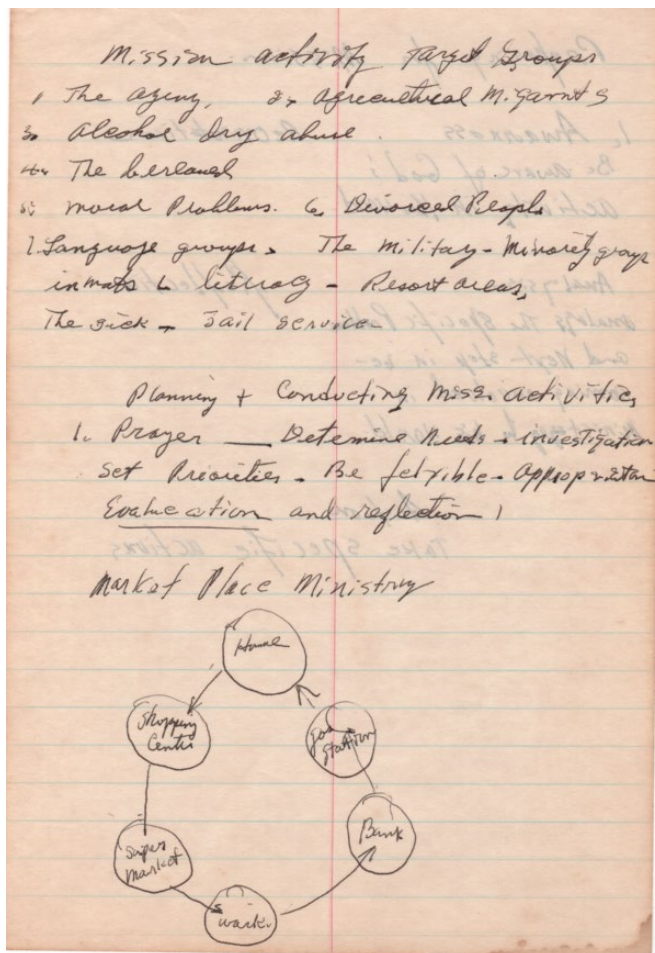 Mission activity Target Groups
1 The ageing, 2. Agricultural Migarnts
3. Alcohol Dry abuse.
4. The bereaved
5. Moral Problems. 6. Divorced People
7. Language groups. The military - Minority groups
inmats & literacy - Resort areas,
The sick - Jail service
Planning + Conducting Miss. activities
1. Prayer — Determine Needs - investigation
Set Priorities - Be felxible -
Evaluation and reflection!
Market Place Ministry
Home
Shopping
Centr
gas
station
Super
market
Bank
work